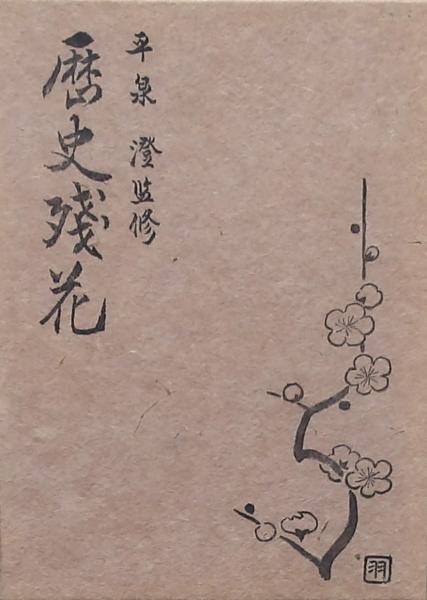 平泉 澄監修
歴史残花
羽